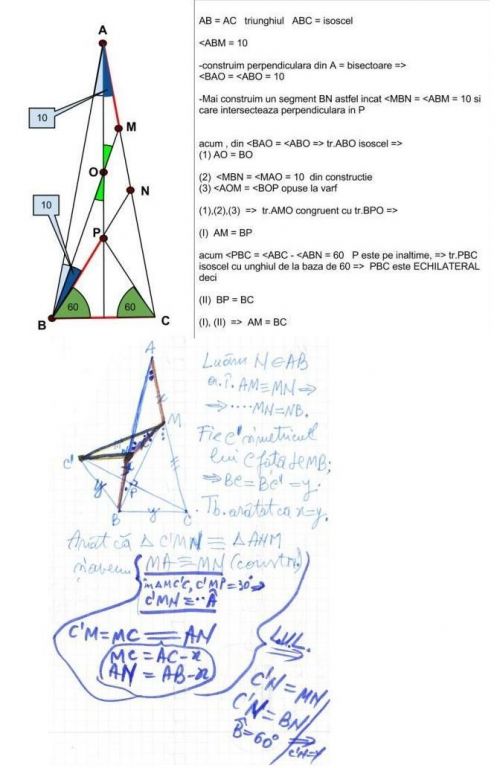 A
10
M
O
N
10
P
60
60
B
C
AB = AC triunghiul ABC = isoscel
<ABM = 10
-construim perpendiculara din A = bisectoare =>
<BAO = <ABO = 10
-Mai construim un segment BN astfel incat <MBN = <ABM = 10 si
care intersecteaza perpendiculara in P
acum , din <BAO = <ABO => tr.ABO isoscel =>
(1) AO = BO
(2) <MBN = <MAO = 10 din constructie
(3) <AOM = <BOP opuse la varf
(1),(2),(3) => tr.AMO congruent cu tr.BPO =>
(I) AM = BP
acum <PBC = <ABC - <ABN = 60 P este pe inaltime, => tr.PBC
isoscel cu unghiul de la baza de 60 => PBC este ECHILATERAL
deci
(II) BP = BC
(I), (II) => AM = BC
A
x
M
C'
P
y
B
y
C
Luăm N∈AB
a.î. AM≡MN ⇒
⇒ ... MN=NB.
Fie C' simetricul
lui C față de MB;
⇒ BC=BC'=y.
Tb. arătat că x=y.
Arăt că △ C'MN ≡ △ AHM
MA≡MN (constr.)
în △MC'C, C'MP=30° ⇒
C'MN ≡ .. Â
C'M=MC=AN
MC=AC-x
AN=AB-x
L.U.L.
⇒
C'N=MN
C'N=BN
B̂=60° ⇒